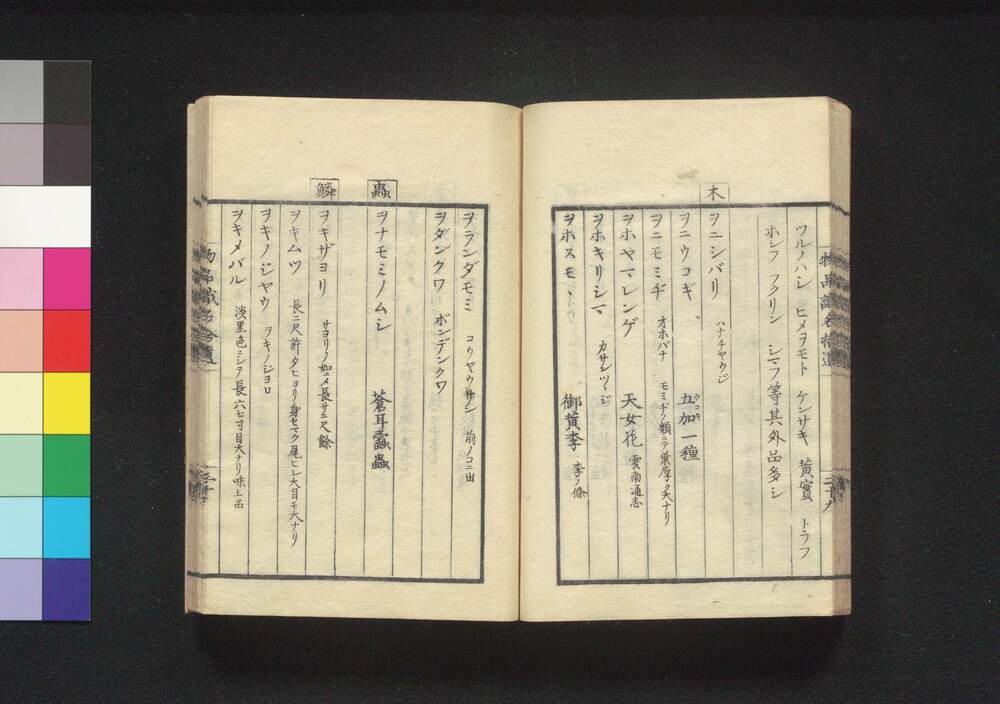 ツルノハシ ヒメヲモト ケンサキ 黄實 トラフ
ホシフ フクリン シマフ等其外品多シ
木
ヲニシバリ ハナチヤウジ
ヲニウコギ 五加一種 ウコギ
ヲニモミヂ オホバナ モミヂノ類ニテ葉厚ク大ナリ
ヲホヤマレンゲ 天女花 雲南通志
ヲホキリシマ カサンツヽジ
ヲホスモヽ 御黄李 李ノ條
ヲランダモミ コウヤウサン 前ノコニ出
ヲダンクワ ボンデンクワ
蟲
ヲナモミノムシ 蒼耳蠹蟲
鱗
ヲキザヨリ サヨリノ如ニメ長サ二尺餘
ヲキムツ 長二尺許タヒヨリ身セマク尾ヒレ大目モ大ナリ
ヲキノジヤウ ヲキノジヨロ
ヲキメバル 淡黒色ニシテ長六七寸目大ナリ味上品
物品識名拾遺